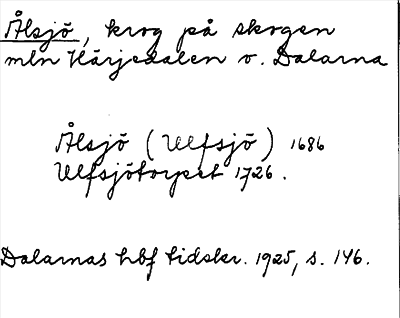 Ålsjö, krog på skogen
mln Härjedalen o. Dalarna
Ålsjö (Ulfsjö) 1686
Ulfsjötorpet 1726.
Dalarnas hbf tidskr. 1925, s. 146.